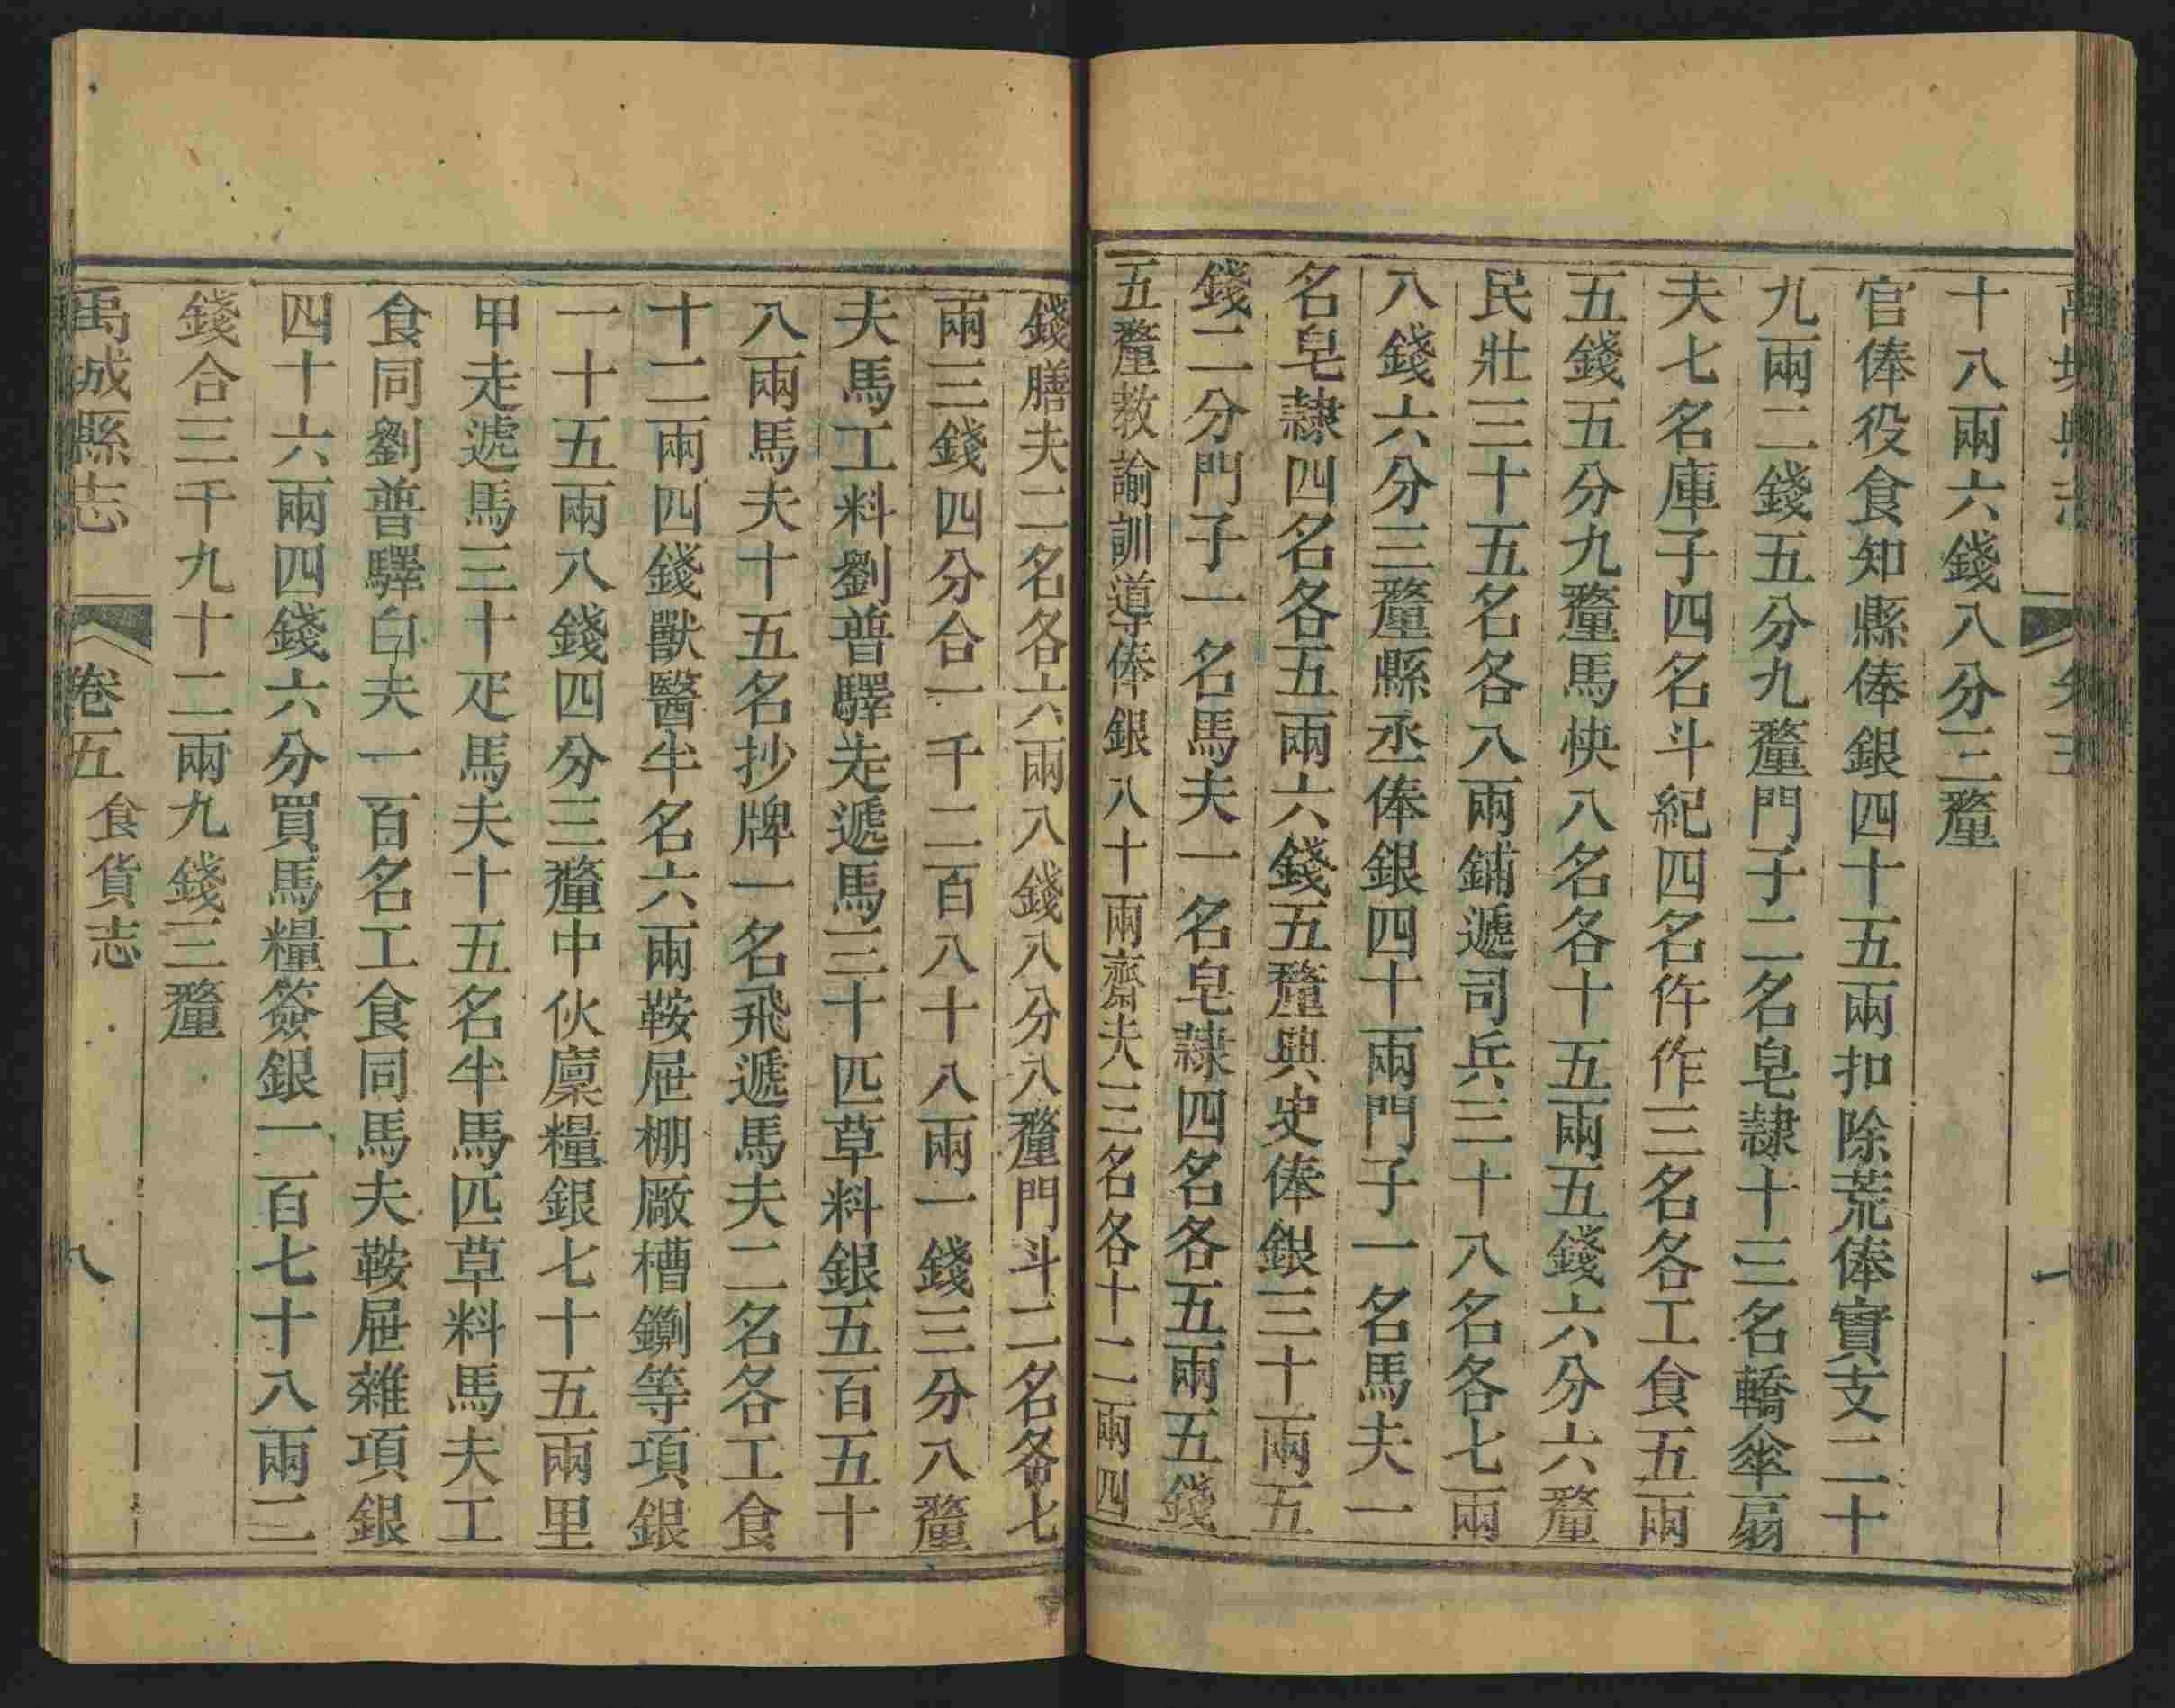 十八兩六錢八分三釐
官俸役食知縣俸銀四十五兩扣除荒俸實支二十
九兩二錢五分九釐門子二名皂隷十三名轎傘扇
夫七名庫子四名斗紀四名仵作三名各工食五兩
五錢五分九釐馬快八名各十五兩五錢六分六釐
民壯三十五名各八兩鋪遞司兵三十八名各七兩
八錢六分三釐縣丞俸銀四十兩門子一名馬夫一
名皂隷四名各五兩六錢五釐典史俸銀三十兩五
錢二分門子一名馬夫一名皂隷四名各五兩五錢
五釐教諭訓導俸銀八十兩齋夫三名各十二兩四
錢膳夫二名各六兩八錢八分八釐門斗二名各七
兩三錢四分合一千二百八十八兩一錢三分八釐
夫馬工料劉普驛走遞馬三十匹草料銀五百五十
八兩馬夫十五名抄牌一名飛遞馬夫二名各工食
十二兩四錢獸醫半名六兩鞍屉棚厰槽鍘等項銀
一十五兩八錢四分三釐中伙廩糧銀七十五兩里
甲走遞馬三十疋馬夫十五名半馬匹草料馬夫工
食同劉普驛白夫一百名工食同馬夫鞍屉雜項銀
四十六兩四錢六分買馬糧簽銀一百七十八兩二
錢合三千九十二兩九錢三釐
禹城縣志 卷五 食貨志 八